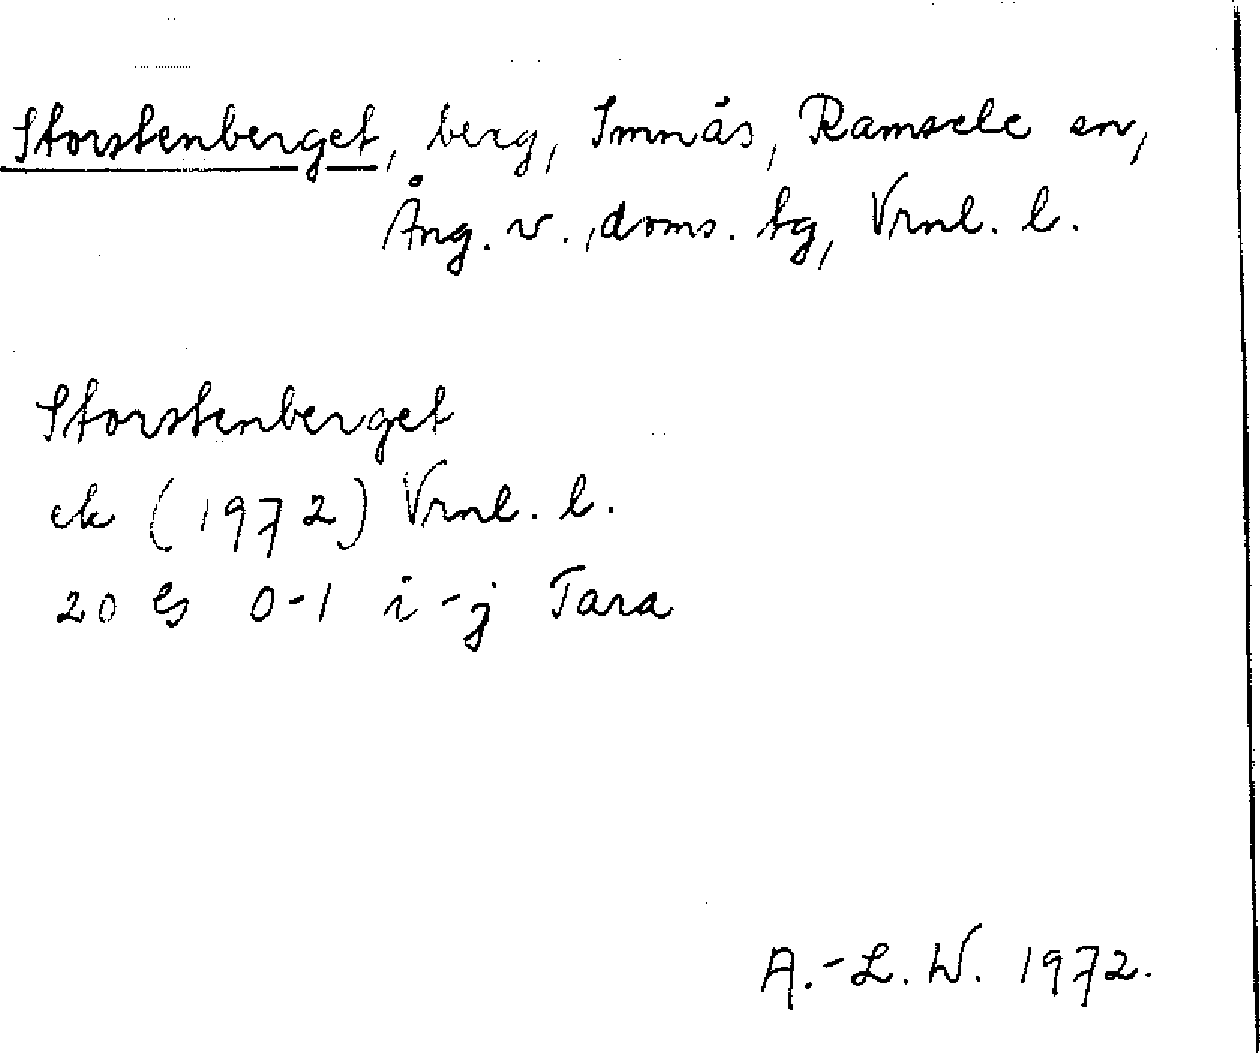 Storstenberget, berg, Imnäs, Ramsele sn,
Ång. v., doms. tg, Vrnl. l.
Storstenberget
ek (1972) Vrnl. l.
20 G 0-1 i-j Tara
A.-L. W. 1972.